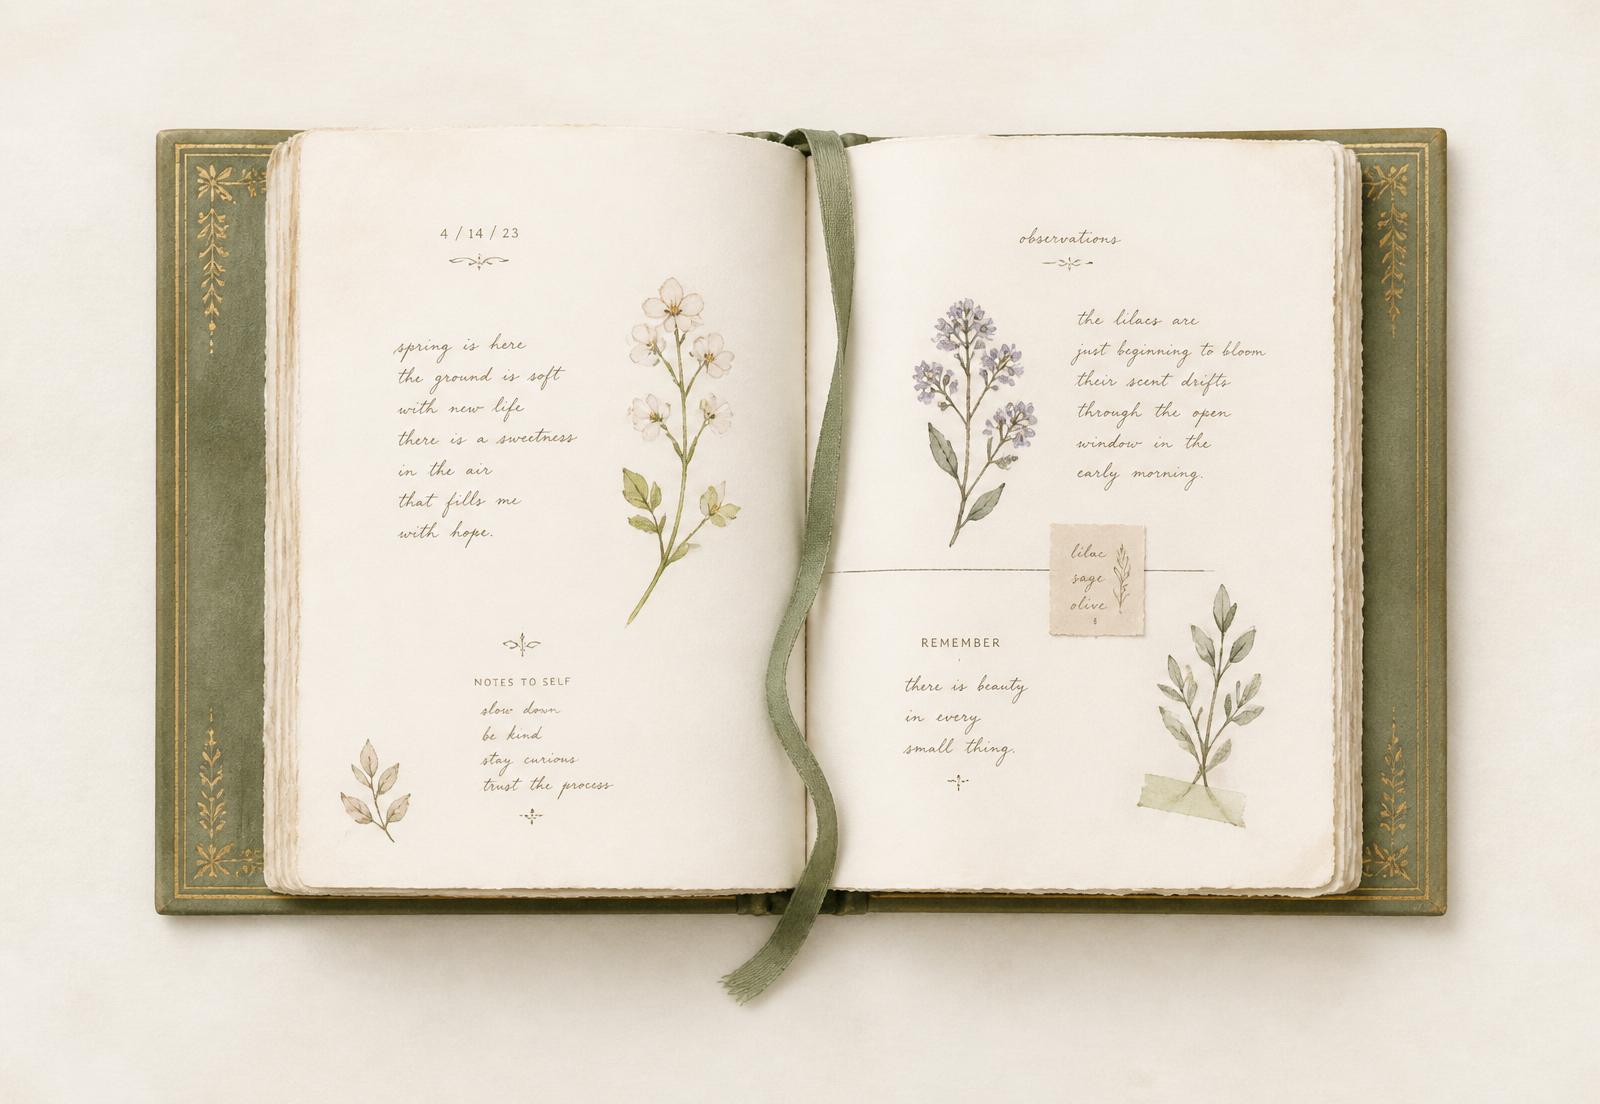 4 / 14 / 23
spring is here
the ground is soft
with new life
there is a sweetness
in the air
that fills me
with hope.
NOTES TO SELF
slow down
be kind
stay curious
trust the process
observations
the lilacs are
just beginning to bloom
their scent drifts
through the open
window in the
early morning.
lilac
sage
olive
REMEMBER
there is beauty
in every
small thing.